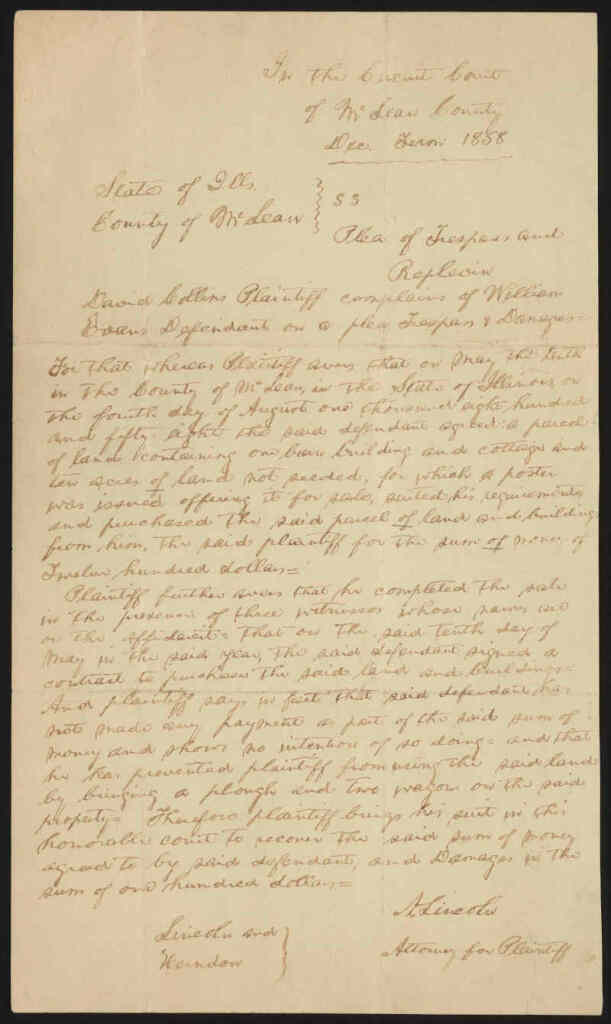 In the Circuit Court
of McLean County
Dec. Term 1858
State of Ills.
County of McLean } SS
Plea of Trespass and
Replevin
David Collins Plaintiff complains of William
Evans Defendant on a plea Trespass & Damages=
For that whereas Plaintiff avers that on May the tenth
in the County of McLean, in the State of Illinois, on
the fourth day of August one thousand eight hundred
and fifty-eight the said defendant agreed a parcel
of land containing one barn building and cottage and
ten acres of land not seeded, for which a poster
was issued offering it for sale, suited his requirements
and purchased the said parcel of land and buildings
from him, the said plaintiff for the sum of money of
Twelve hundred dollars=
Plaintiff further avers that he completed the sale
in the presence of three witnesses whose names are
on the affidavit= That on the said tenth day of
May in the said year, the said defendant signed a
contract to purchase the said land and buildings=
And plaintiff says in fact that said defendant has
not made any payment as part of the said sum of
money and shows no intention of so doing= and that
he has prevented plaintiff from using the said land
by bringing a plough and two wagons on the said
property= Therefore plaintiff brings his suit in this
honorable court to recover the said sum of money
agreed to by said defendant, and Damages in the
sum of one hundred dollars=
A Lincoln
Attorney for Plaintiff
Lincoln and
Herndon }